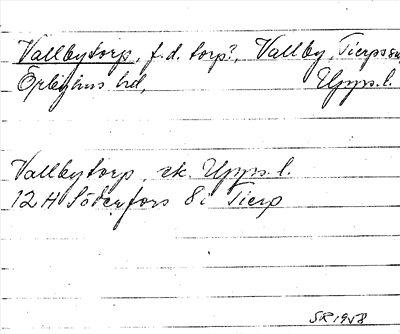 Vallbytorp, f.d. torp?, Vallby, Tierps sn,
Örbyhus hd, Upps. l.
Vallbytorp, ek. Upps. l.
12 H Söderfors 8 i Tierp
SR 1958